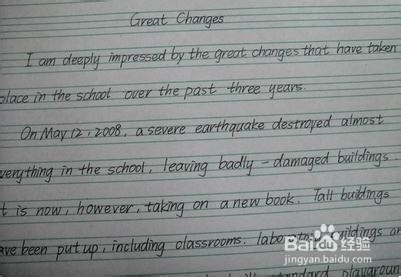 Great Changes
I am deeply impressed by the great changes that have taken
place in the school over the past three years.
On May 12, 2008, a severe earthquake destroyed almost
verything in the school, leaving badly-damaged buildings.
t is now, however, taking on a new book. Tall buildings
ave been put up, including classrooms. laboratory buildings an
standard playgroun
Baidu 经验
jingyan.baidu.com